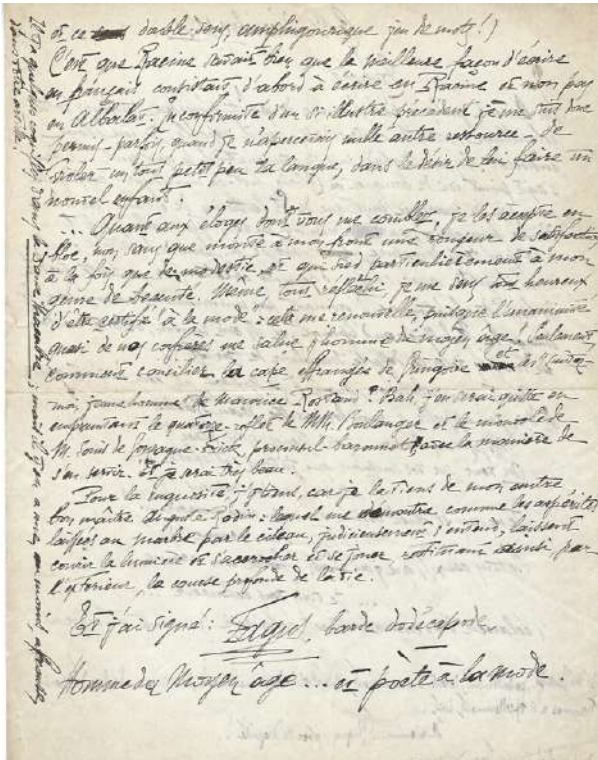 et ce double sens, amphigourique jeu de mots !)
C'est que Racine savait bien que la meilleure façon d'écrire
en français consistait d'abord à écrire en Racine et non pas
en Albalat. En conformité d'un si illustre précédent je me suis donc
permis - parfois, quand je n'apercevais nulle autre ressource - de
violer un tout petit peu la langue, dans le désir de lui faire un
nouvel enfant.
... Quant aux éloges dont vous me comblez, je les accepte en
bloc, non sans que monte à mon front une rougeur de satisfaction
à la fois que de modestie, et qui sied particulièrement à mon
genre de beauté. Même, tout réfléchi, je me sens très heureux
d'être certifié "à la mode" : cela me renouvelle, puisque l'unanimité
quasi de nos confrères me salue "homme de moyen âge" ! Seulement,
comment concilier la cape effrangée de Gringoire et les
moi, jeune homme" de Maurice Rostand ? Bah, j'en serai quitte en
empruntant le quatre-reflets de MM. Boulanger et le monocle de
M. Louis de Gonzague-Frick, avec la manière de
s'en servir. Et je serai très beau.
Pour la rugosité, j'y tiens, car je la tiens de mon
bon maître Auguste Rodin : lequel me démontra comme les aspérités
laissées au marbre par le ciseau, judicieusement s'entend, laissent
courir la lumière et s'accrocher et se jouer, restituant ainsi par
l'extérieur, la course profonde de la vie.
Et j'ai signé : Fagus, barde
Homme du Moyen âge ... et poète à la mode.
Il y a quelques dans la Danse Macabre ; mais il y en a
dans votre article